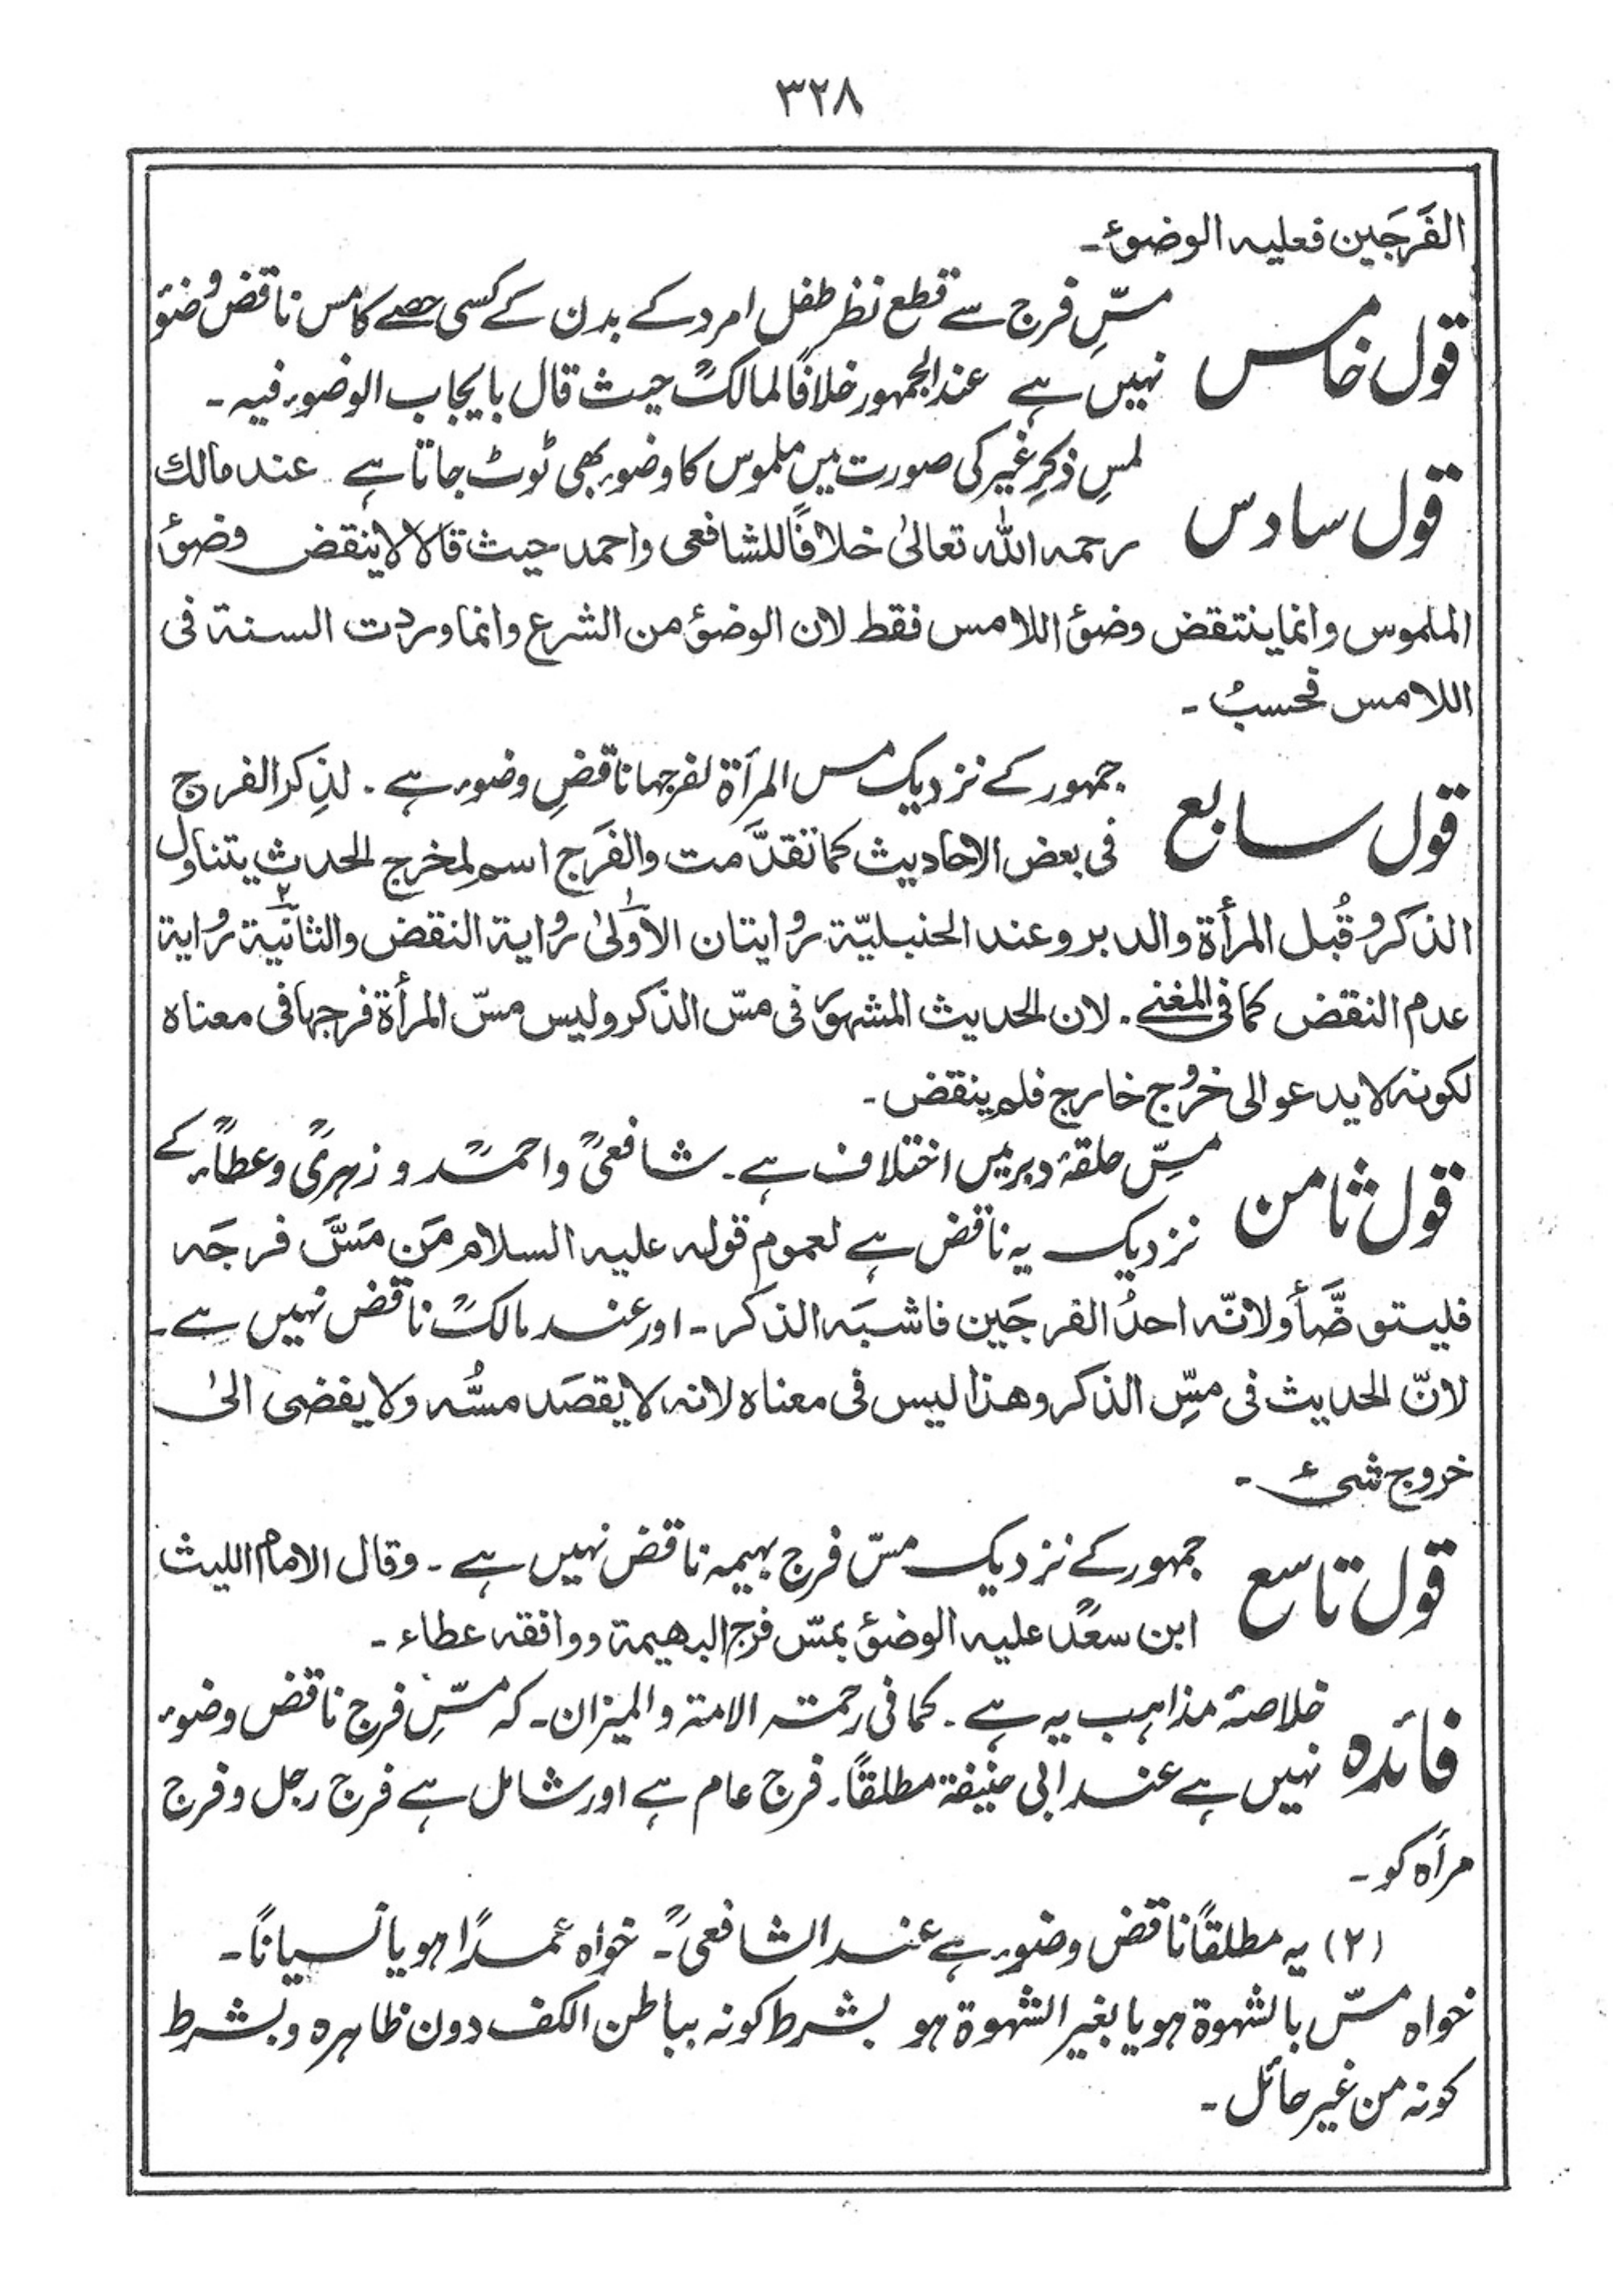 ۳۲۸
الفَرجَین فعلیہ الوضوءُ۔
قول خامس
مسِّ فرج سے قطع نظر طفل امرد کے بدن کے کسی حصے کا مس ناقض وُضوٗ
نہیں ہے عند الجمہور خلافًا لمالکؒ حیث قال بایجاب الوضوء فیہ۔
قول سادس
لمسِ ذکرِ غیر کی صورت میں ملموس کا وضوء بھی ٹوٹ جاتا ہے۔ عند مالك
رحمہ اللہ تعالیٰ خلافًا للشافعی واحمد حیث قالا لاینقض وضوءُ
الملموس وانما ینتقض وضوءُ اللامس فقط لان الوضوءَ من الشرع وانما وردت السنۃ فی
اللامس فحسبُ۔
قول سابع
جمہور کے نزدیک مس المرأۃ لفرجہا ناقضِ وضوء ہے۔ لذِکر الفرج
فی بعض الاحادیث کما تقدَّمت والفَرج اسم لمخرج الحدث یتناول
الذکر وقُبل المرأۃ والدبر وعند الحنبلیّۃ روایتان الاُولیٰ روایۃ النقض والثانیۃ روایۃ
عدم النقض کما فی المغنے۔ لان الحدیث المشہور فی مسّ الذکر ولیس مسّ المرأۃ فرجہا فی معناہ
لکونہ لایدعو الی خروج خارج فلم ینقض۔
قول ثامن
مسِّ حلقۂ دبر میں اختلاف ہے۔ شافعیؒ واحمدؒ و زہریؒ وعطاءؒ کے
نزدیک یہ ناقض ہے لعموم قولہ علیہ السلام مَن مَسَّ فرجَہ
فلیتوضَّأ ولانّہ احدُ الفرجَین فاشبَہ الذکر۔ اور عند مالکؒ ناقض نہیں ہے۔
لانّ الحدیث فی مسِّ الذکر وھذا لیس فی معناہ لانہ لایُقصَد مسُّہ ولا یفضی الیٰ
خروج شیء۔
قول تاسع
جمہور کے نزدیک مسّ فرج بہیمہ ناقض نہیں ہے۔ وقال الامام اللیث
ابن سعدؒ علیہ الوضوءُ بمسّ فرج البھیمۃ ووافقہ عطاء۔
فائدہ
خلاصۂ مذاہب یہ ہے۔ کما فی رحمتہ الامۃ والمیزان۔ کہ مسِّ فرج ناقض وضوء
نہیں ہے عند ابی حنیفۃ مطلقًا۔ فرج عام ہے اور شامل ہے فرج رجل و فرج
مرأہ کو۔
(۲) یہ مطلقًا ناقض وضوء ہے عند الشافعیؒ۔ خواہ عمدًا ہو یا نسیانًا۔
خواہ مسّ بالشہوۃ ہو یا بغیر الشہوۃ ہو بشرط کونہ بباطن الکف دون ظاہرہ و بشرط
کونہ من غیر حائل۔